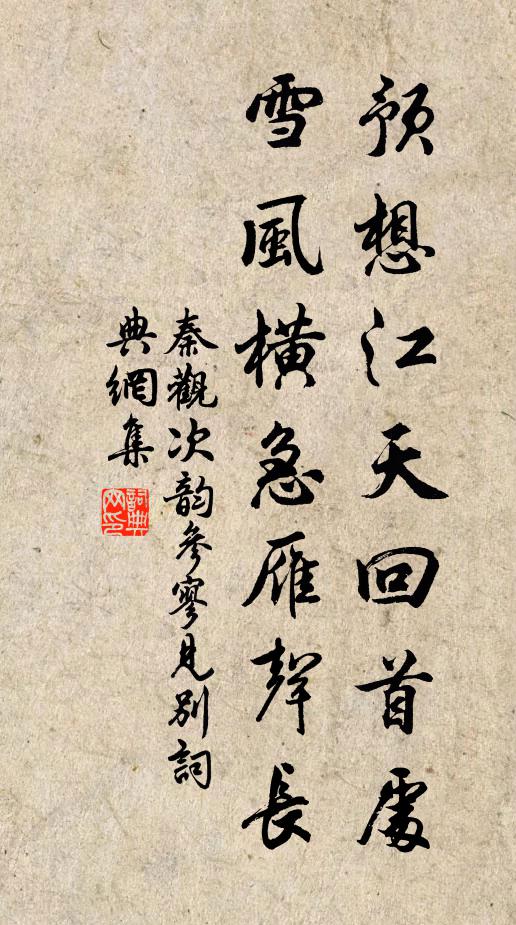 預想江天回首處
雪風橫急雁聲長
秦觀次韵參寥見別詞
典網集
詞典網印